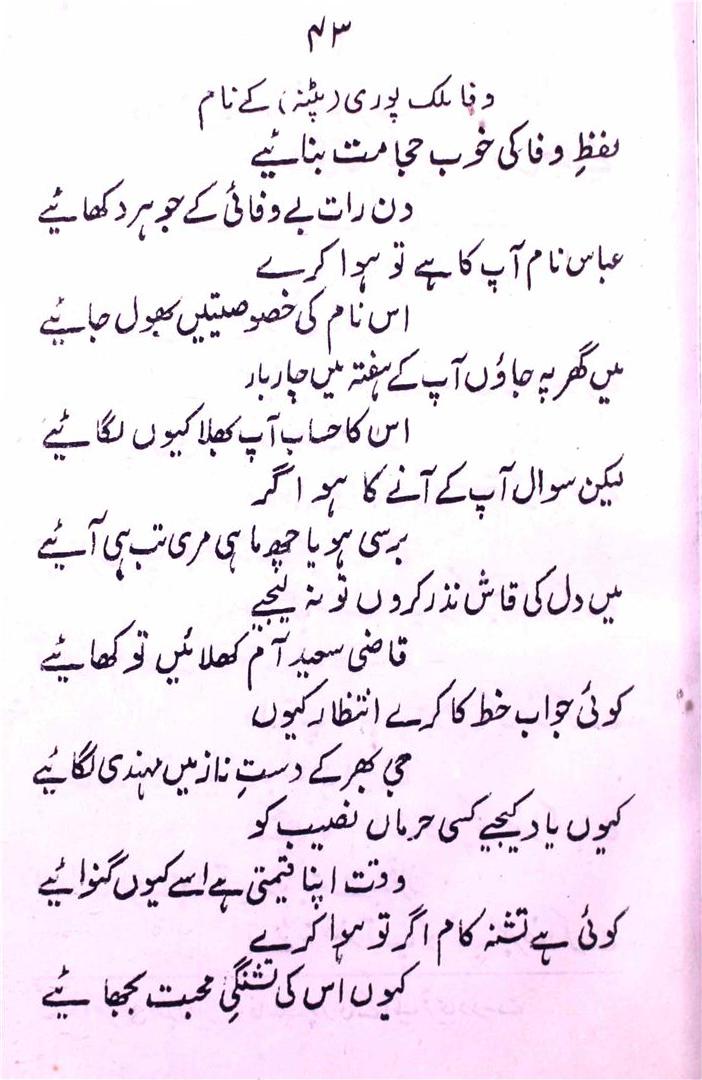 ۴۳
وفا ملک پوری (پٹنہ) کے نام
لفظِ وفا کی خوب حجامت بنائیے
دن رات بے وفائی کے جوہر دکھائیے
عباس نام آپ کا ہے تو ہوا کرے
اس نام کی خصوصیتیں بھول جائیے
میں گھر پہ جاؤں آپ کے ہفتہ میں چار بار
اس کا حساب آپ بھلا کیوں لگائیے
لیکن سوال آپ کے آنے کا ہو اگر
برسی ہو یا چھ ماہی مری تب ہی آئیے
میں دل کی قاش نذر کروں تو نہ لیجیے
قاضی سعید آم کھلائیں تو کھائیے
کوئی جواب خط کا کرے انتظار کیوں
جی بھر کے دستِ ناز میں مہندی لگائیے
کیوں یاد کیجیے کسی حرماں نصیب کو
وقت اپنا قیمتی ہے اسے کیوں گنوائیے
کوئی ہے تشنہ کام اگر تو ہوا کرے
کیوں اس کی تشنگیِ محبت بجھائیے